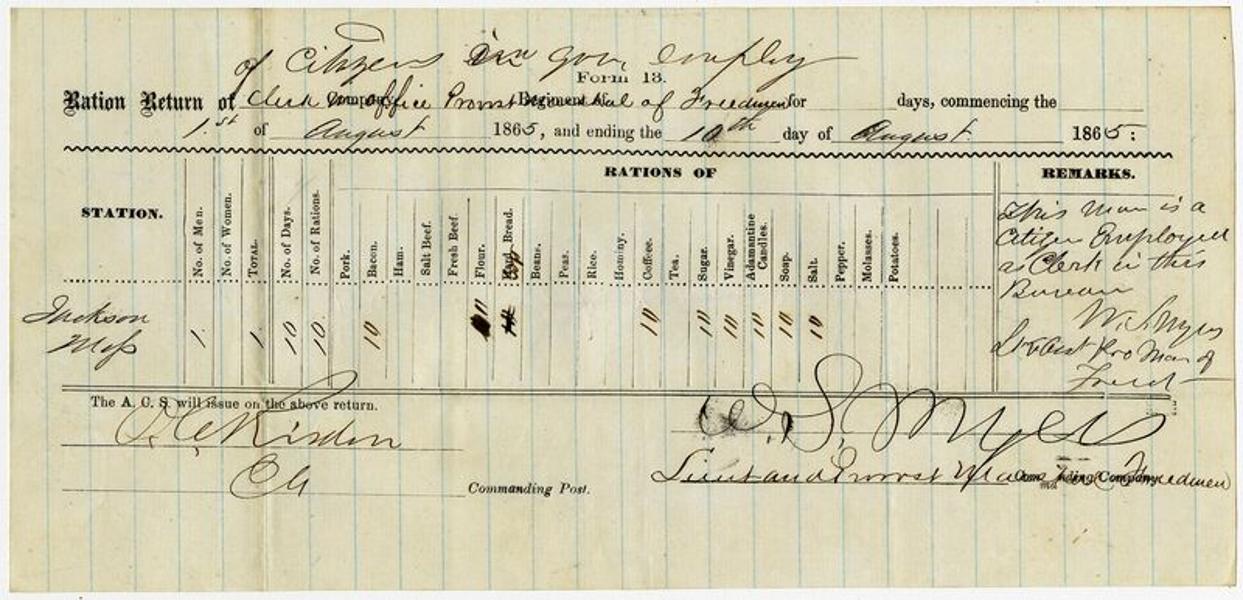 of Citizens in gov. employ
Form 13.
Ration Return of Clerk in office Provost Marshal of Freedmen for days, commencing the
1.st of August 1865, and ending the 10th day of August 1865:
RATIONS OF
REMARKS.
STATION.
No. of Men.
No. of Women.
TOTAL.
No. of Days.
No. of Rations.
Pork.
Bacon.
Ham.
Salt Beef.
Fresh Beef.
Flour.
Hard Bread.
Beans.
Peas.
Rice.
Hominy.
Coffee.
Tea.
Sugar.
Vinegar.
Adamantine Candles.
Soap.
Salt.
Pepper.
Molasses.
Potatoes.
Jackson
Miss
1 1 10 10 10 10 10 10 10 10 10
This Man is a
Citizen Employed
as Clerk in this
Bureau
W. S. Myers
Lt & Asst Pro Mar of
Freed
The A. C. S. will issue on the above return.
W. S. Myers
Commanding Post.
Lieut and Provost Mar Freedmen